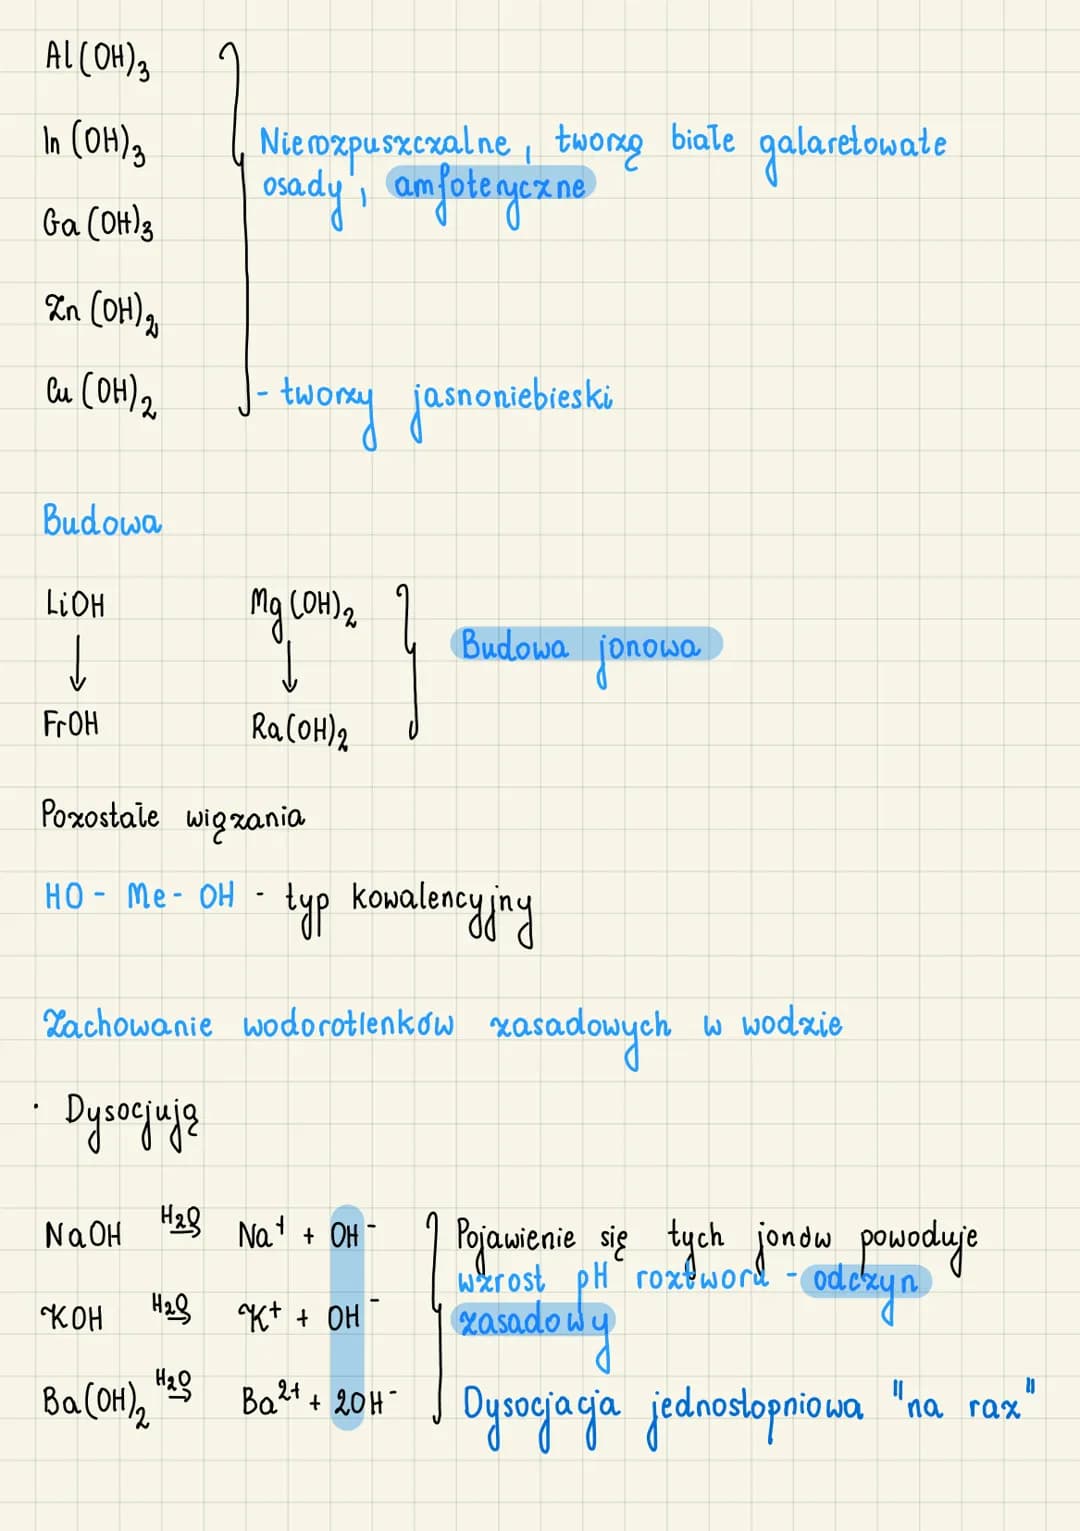 Al(OH)₃
In(OH)₃
Nierozpuszczalne, tworzą białe galaretowate
osady, amfoteryczne
Ga(OH)₃
Zn(OH)₂
Cu(OH)₂ - tworzy jasnoniebieski
Budowa
LiOH Mg(OH)₂
↓ ↓ Budowa jonowa
FrOH Ra(OH)₂
Pozostałe wiązania
HO - Me - OH - typ kowalencyjny
Zachowanie wodorotlenków zasadowych w wodzie
· Dysocjują
NaOH H₂O→ Na⁺ + OH⁻
KOH H₂O→ K⁺ + OH⁻
Ba(OH)₂ H₂O→ Ba²⁺ + 2OH⁻
Pojawienie się tych jonów powoduje
wzrost pH roztworu - odczyn
zasadowy
Dysocjacja jednostopniowa "na raz"